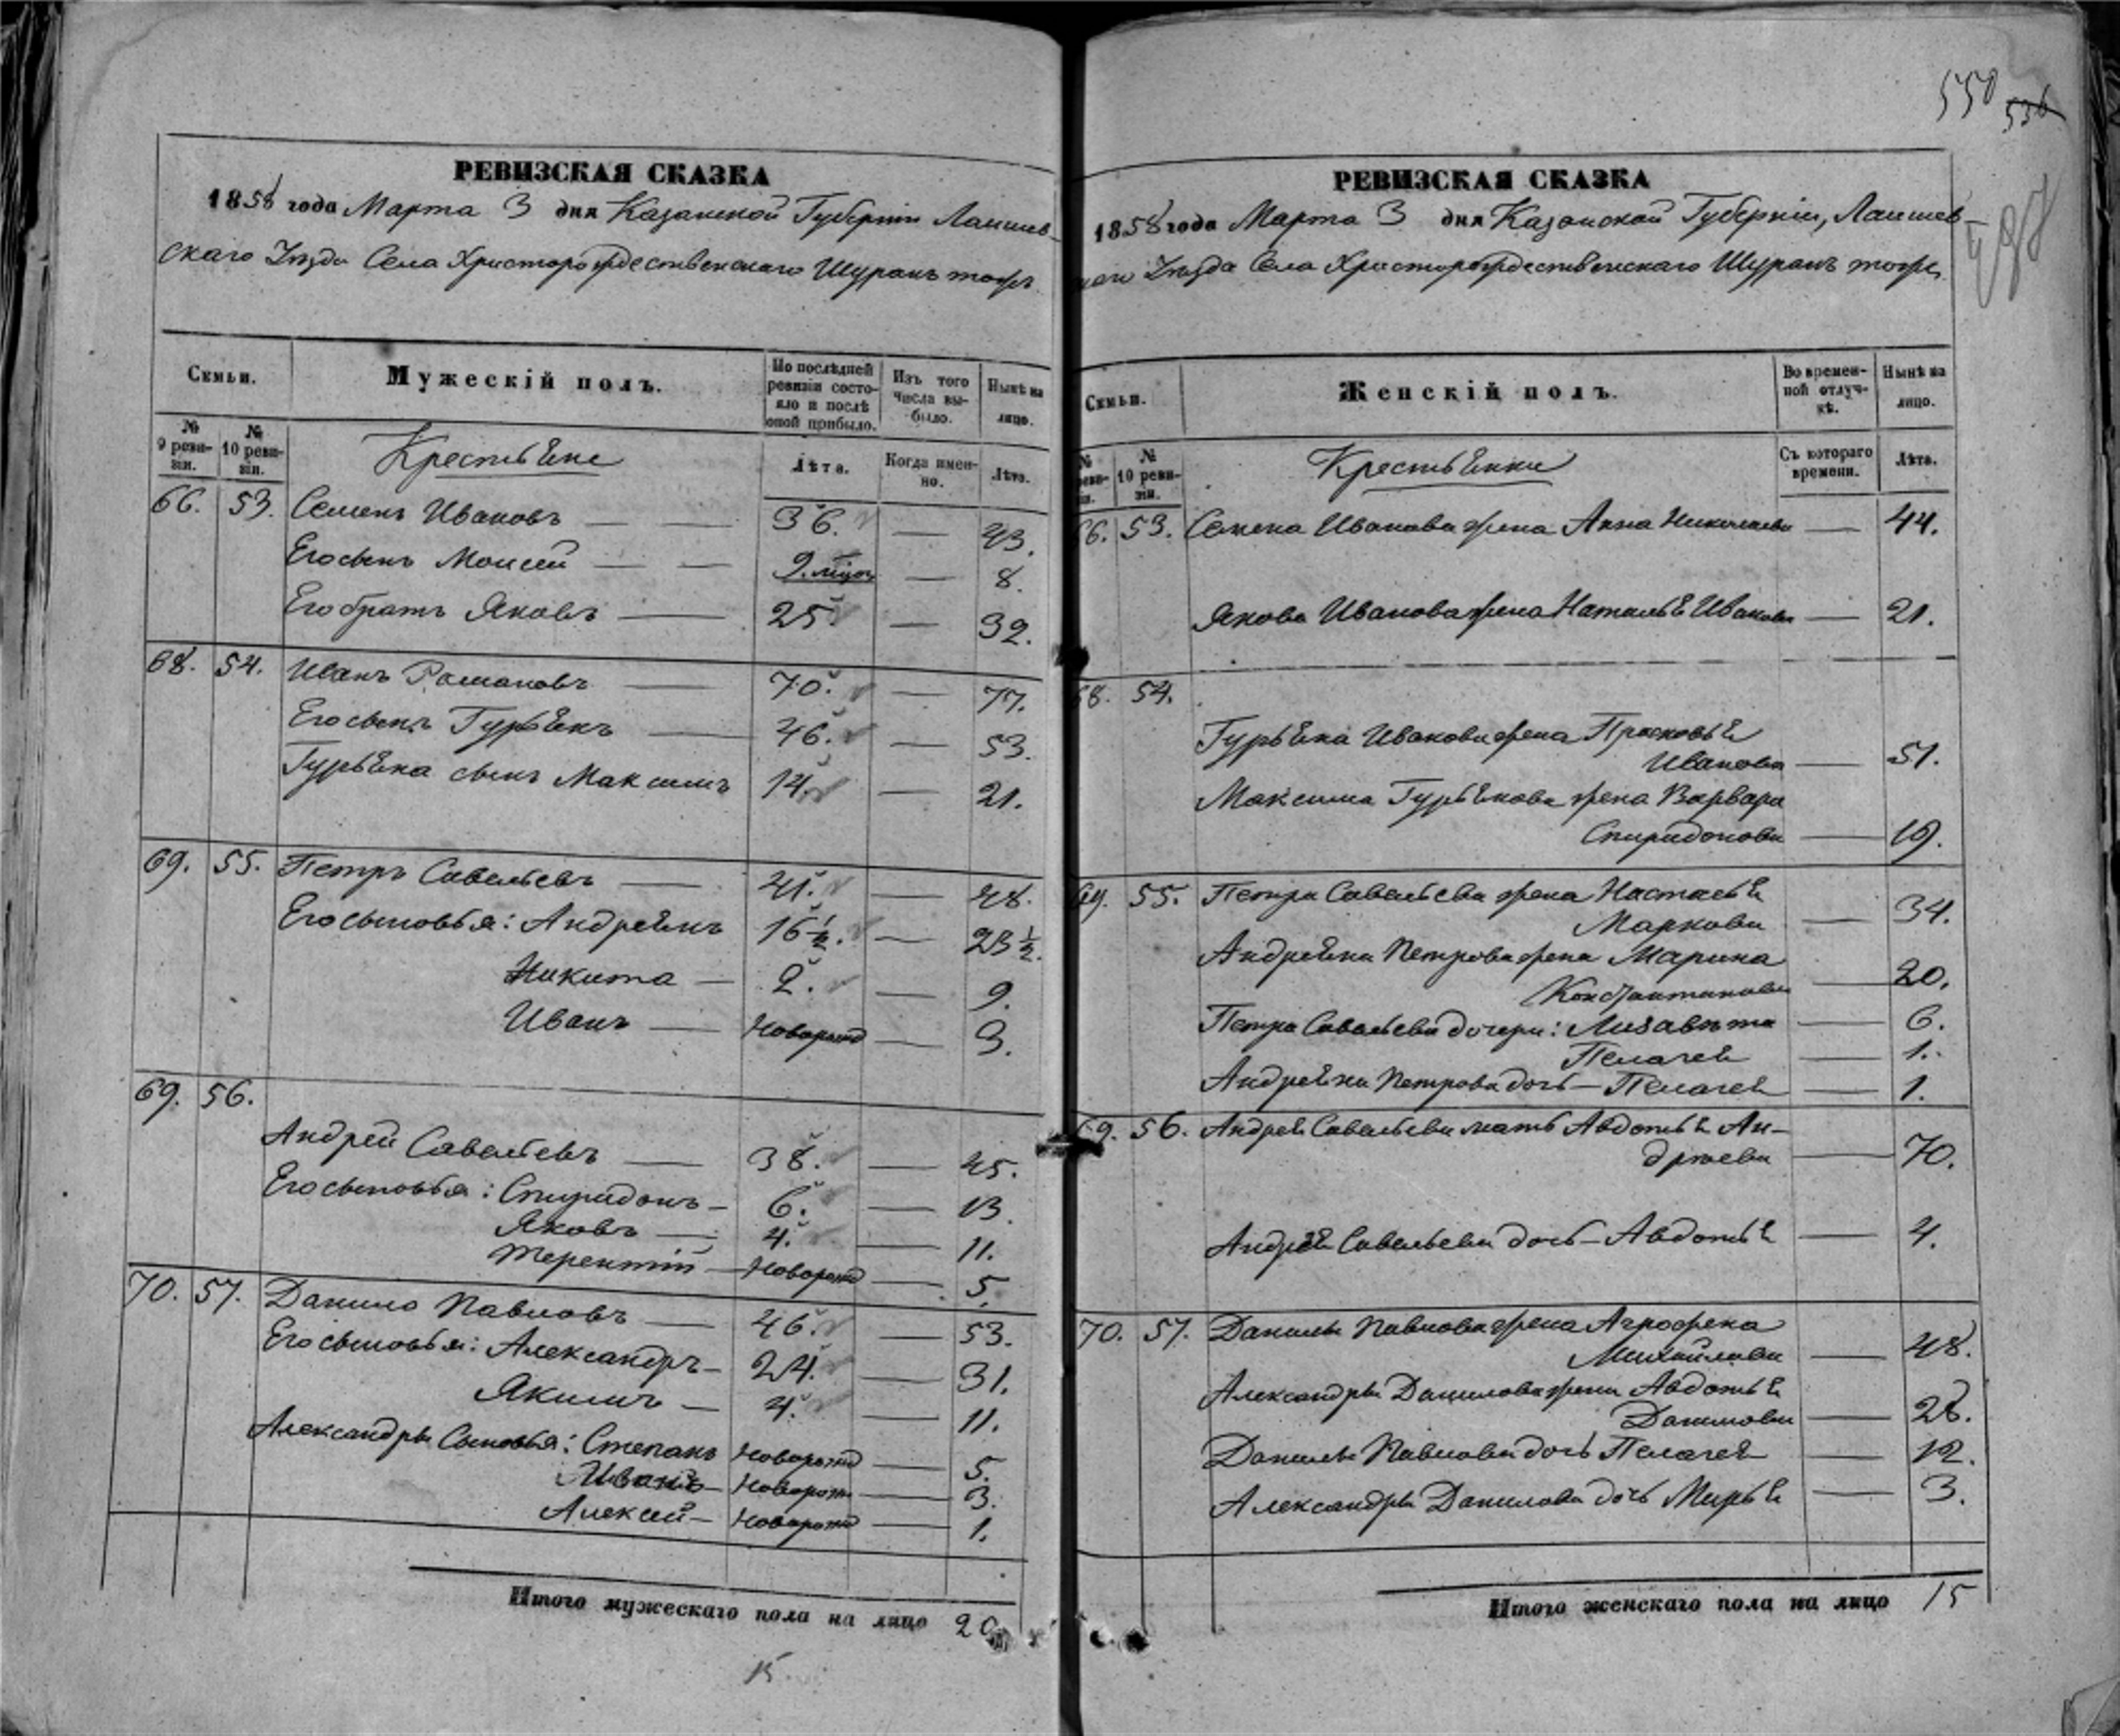 РЕВИЗСКАЯ СКАЗКА
1858 года Марта 3 дня Казанской Губерніи Лаишев-
скаго Уѣзда Села Христорождественскаго Шуранъ тожъ
Семьи.
Мужескій полъ.
По послѣдней ревизіи состояло и послѣ оной прибыло.
Изъ того числа выбыло.
Нынѣ на лицо.
№ 9 ревизіи.
№ 10 ревизіи.
Крестьяне
Лѣта.
Когда именно.
Лѣта.
66. 53. Семенъ Ивановъ — — 36. — 43.
Его сынъ Моисей — — 9. мѣсяц — 8.
Его братъ Яковъ — 25. — 32.
68. 54. Иванъ Романовъ — 70. — 77.
Его сынъ Гурьянъ — 46. — 53.
Гурьяна сынъ Максимъ 14. — 21.
69. 55. Петръ Савельевъ — 41. — 48.
Его сыновья: Андреянъ 16 ½. — 23 ½.
Никита — 2. — 9.
Иванъ — Новорожд — 3.
69. 56.
Андрей Савельевъ — 38. — 45.
Его сыновья: Спиридонъ — 6. — 13.
Яковъ — 4. — 11.
Терентій — Новорожд — 5.
70. 57. Данило Павловъ — 46. — 53.
Его сыновья: Александръ — 24. — 31.
Якимъ — 4. — 11.
Александра Сыновья: Степанъ Новорожд — 5.
Иванъ — Новорожд — 3.
Алексей — Новорожд — 1.
Итого мужескаго пола на лицо 20
15.
550 536
РЕВИЗСКАЯ СКАЗКА
1858 года Марта 3 дня Казанской Губерніи, Лаишев-
скаго Уѣзда Села Христорождественскаго Шуранъ тожъ
Семьи.
Женскій полъ.
Во временной отлучкѣ.
Нынѣ на лицо.
№ ревизіи.
№ 10 ревизіи.
Крестьянки
Съ котораго времени.
Лѣта.
66. 53. Семена Иванова жена Анна Николаева — 44.
Якова Иванова жена Наталья Иванова — 21.
68. 54.
Гурьяна Иванова жена Прасковья
Иванова — 51.
Максима Гурьянова жена Варвара
Спиридонова — 19.
69. 55. Петра Савельева жена Настасья
Маркова — 34.
Андреяна Петрова жена Марина
Константинова — 20.
Петра Савельева дочери: Лизавѣта — 6.
Пелагея — 1.
Андреяна Петрова дочь — Пелагея — 1.
69. 56. Андрея Савельева мать Авдотья Ан-
дреева — 70.
Андрея Савельева дочь — Авдотья — 4.
70. 57. Данилы Павлова жена Агрофена
Михайлова — 48.
Александра Данилова жена Авдотья
Данилова — 28.
Данилы Павлова дочь Пелагея — 12.
Александра Данилова дочь Марья — 3.
Итого женскаго пола на лицо 15